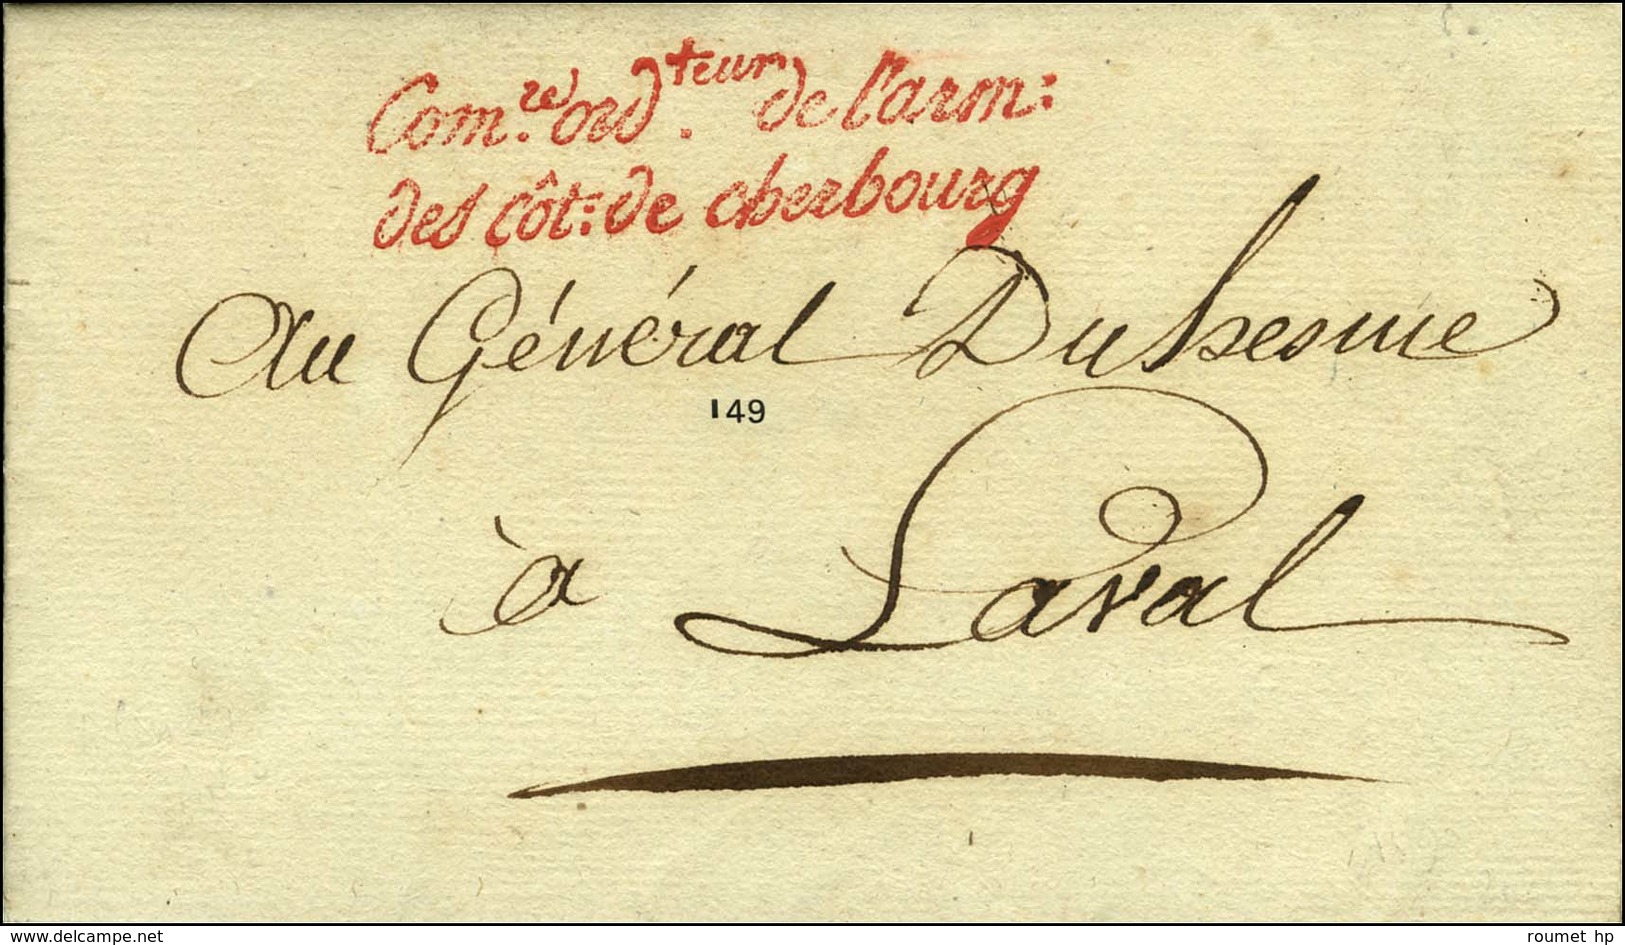 Com.re ord.teur de l'arm:
des côt: de cherbourg
Au Général Duhesme
149
à Laval
www.delcampe.net
roumet hp